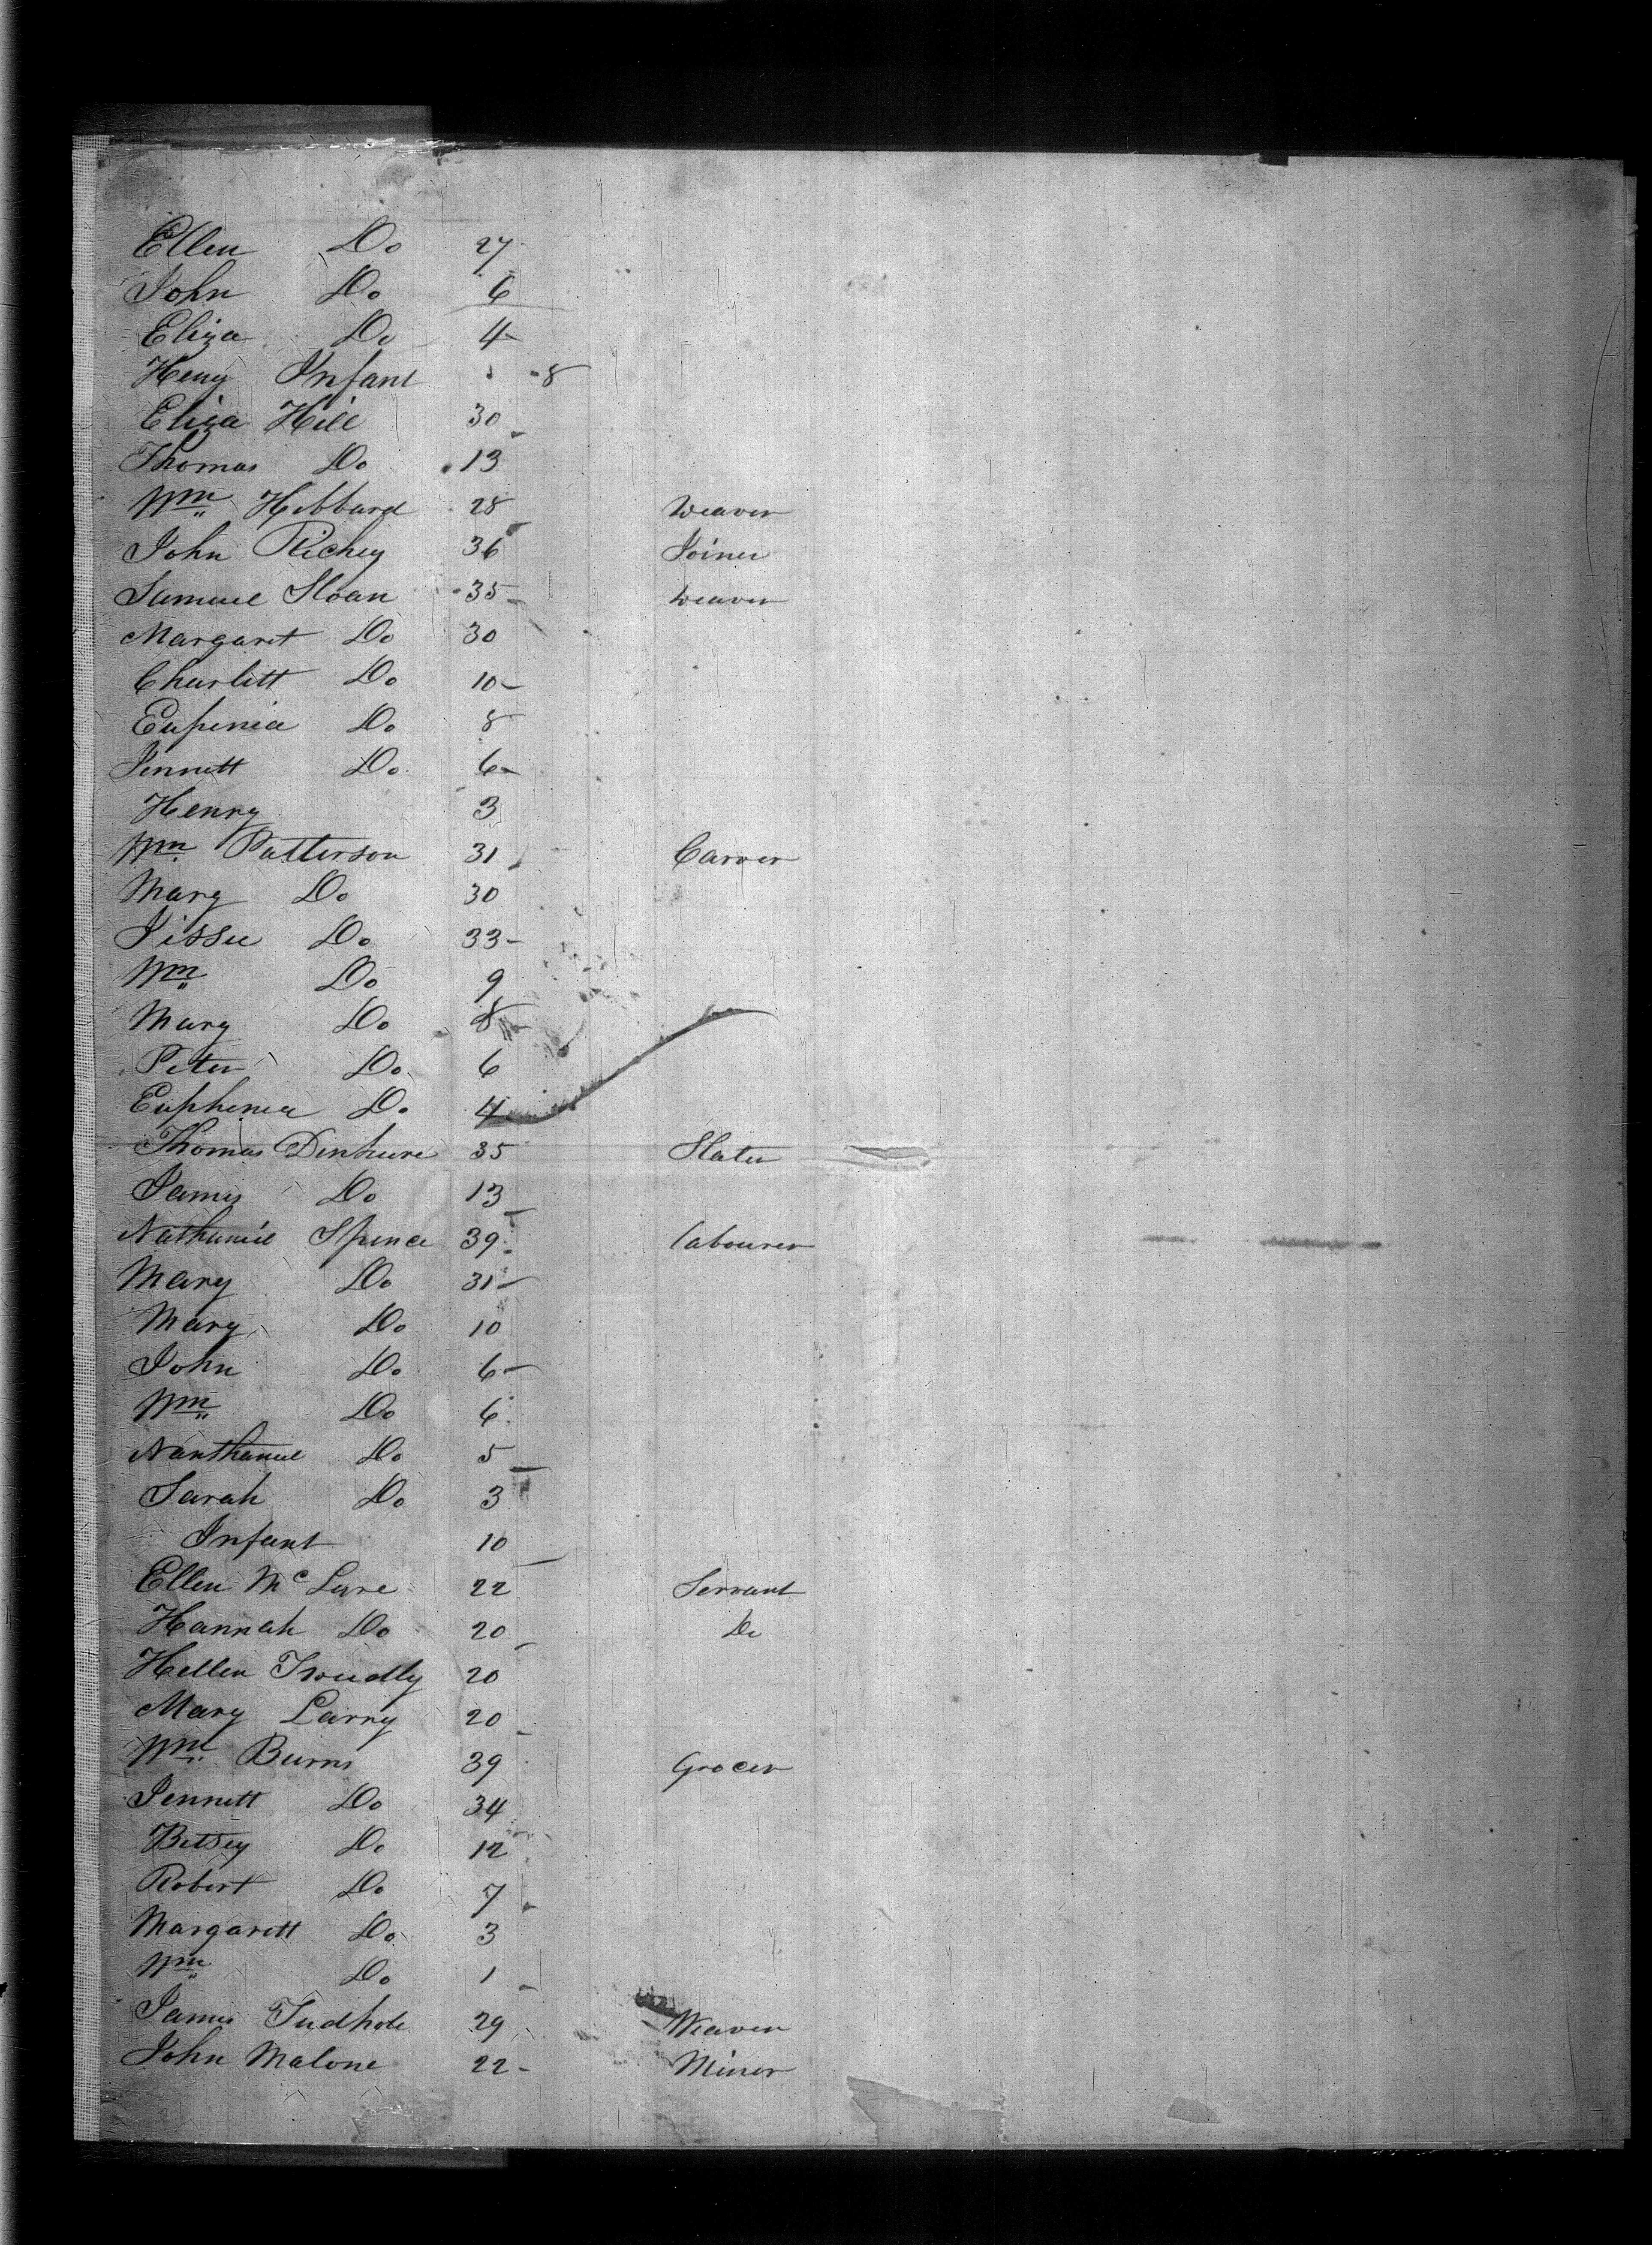 Ellen Do 27
John Do 6
Eliza Do 4
Heny Infant 8
Eliza Hill 30
Thomas Do 13
Wm Hibbard 28 Weaver
John Richey 36 Joiner
Samuel Sloan 35 Weaver
Margaret Do 30
Charlitt Do 10
Eupenia Do 8
Jennett Do 6
Henry 3
Wm Patterson 31 Carver
Mary Do 30
Jissee Do 33
Wm Do 9
Mary Do 8
Peter Do 6
Euphenia Do 4
Thomas 35 Slater
James Do 13
Nathaniel Spence 39 labourer
Mary Do 31
Mary Do 10
John Do 6
Wm Do 6
Nanthaniel Do 5
Sarah Do 3
Infant 10
Ellen McLure 22 Servant
Hannah Do 20 Do
Hellen 20
Mary Larry 20
Wm Burns 39 Grocer
Jennett Do 34
Betsey Do 12
Robert Do 7
Margarett Do 3
Wm Do 1
James Tudhole 29 Weaver
John Malone 22 Miner